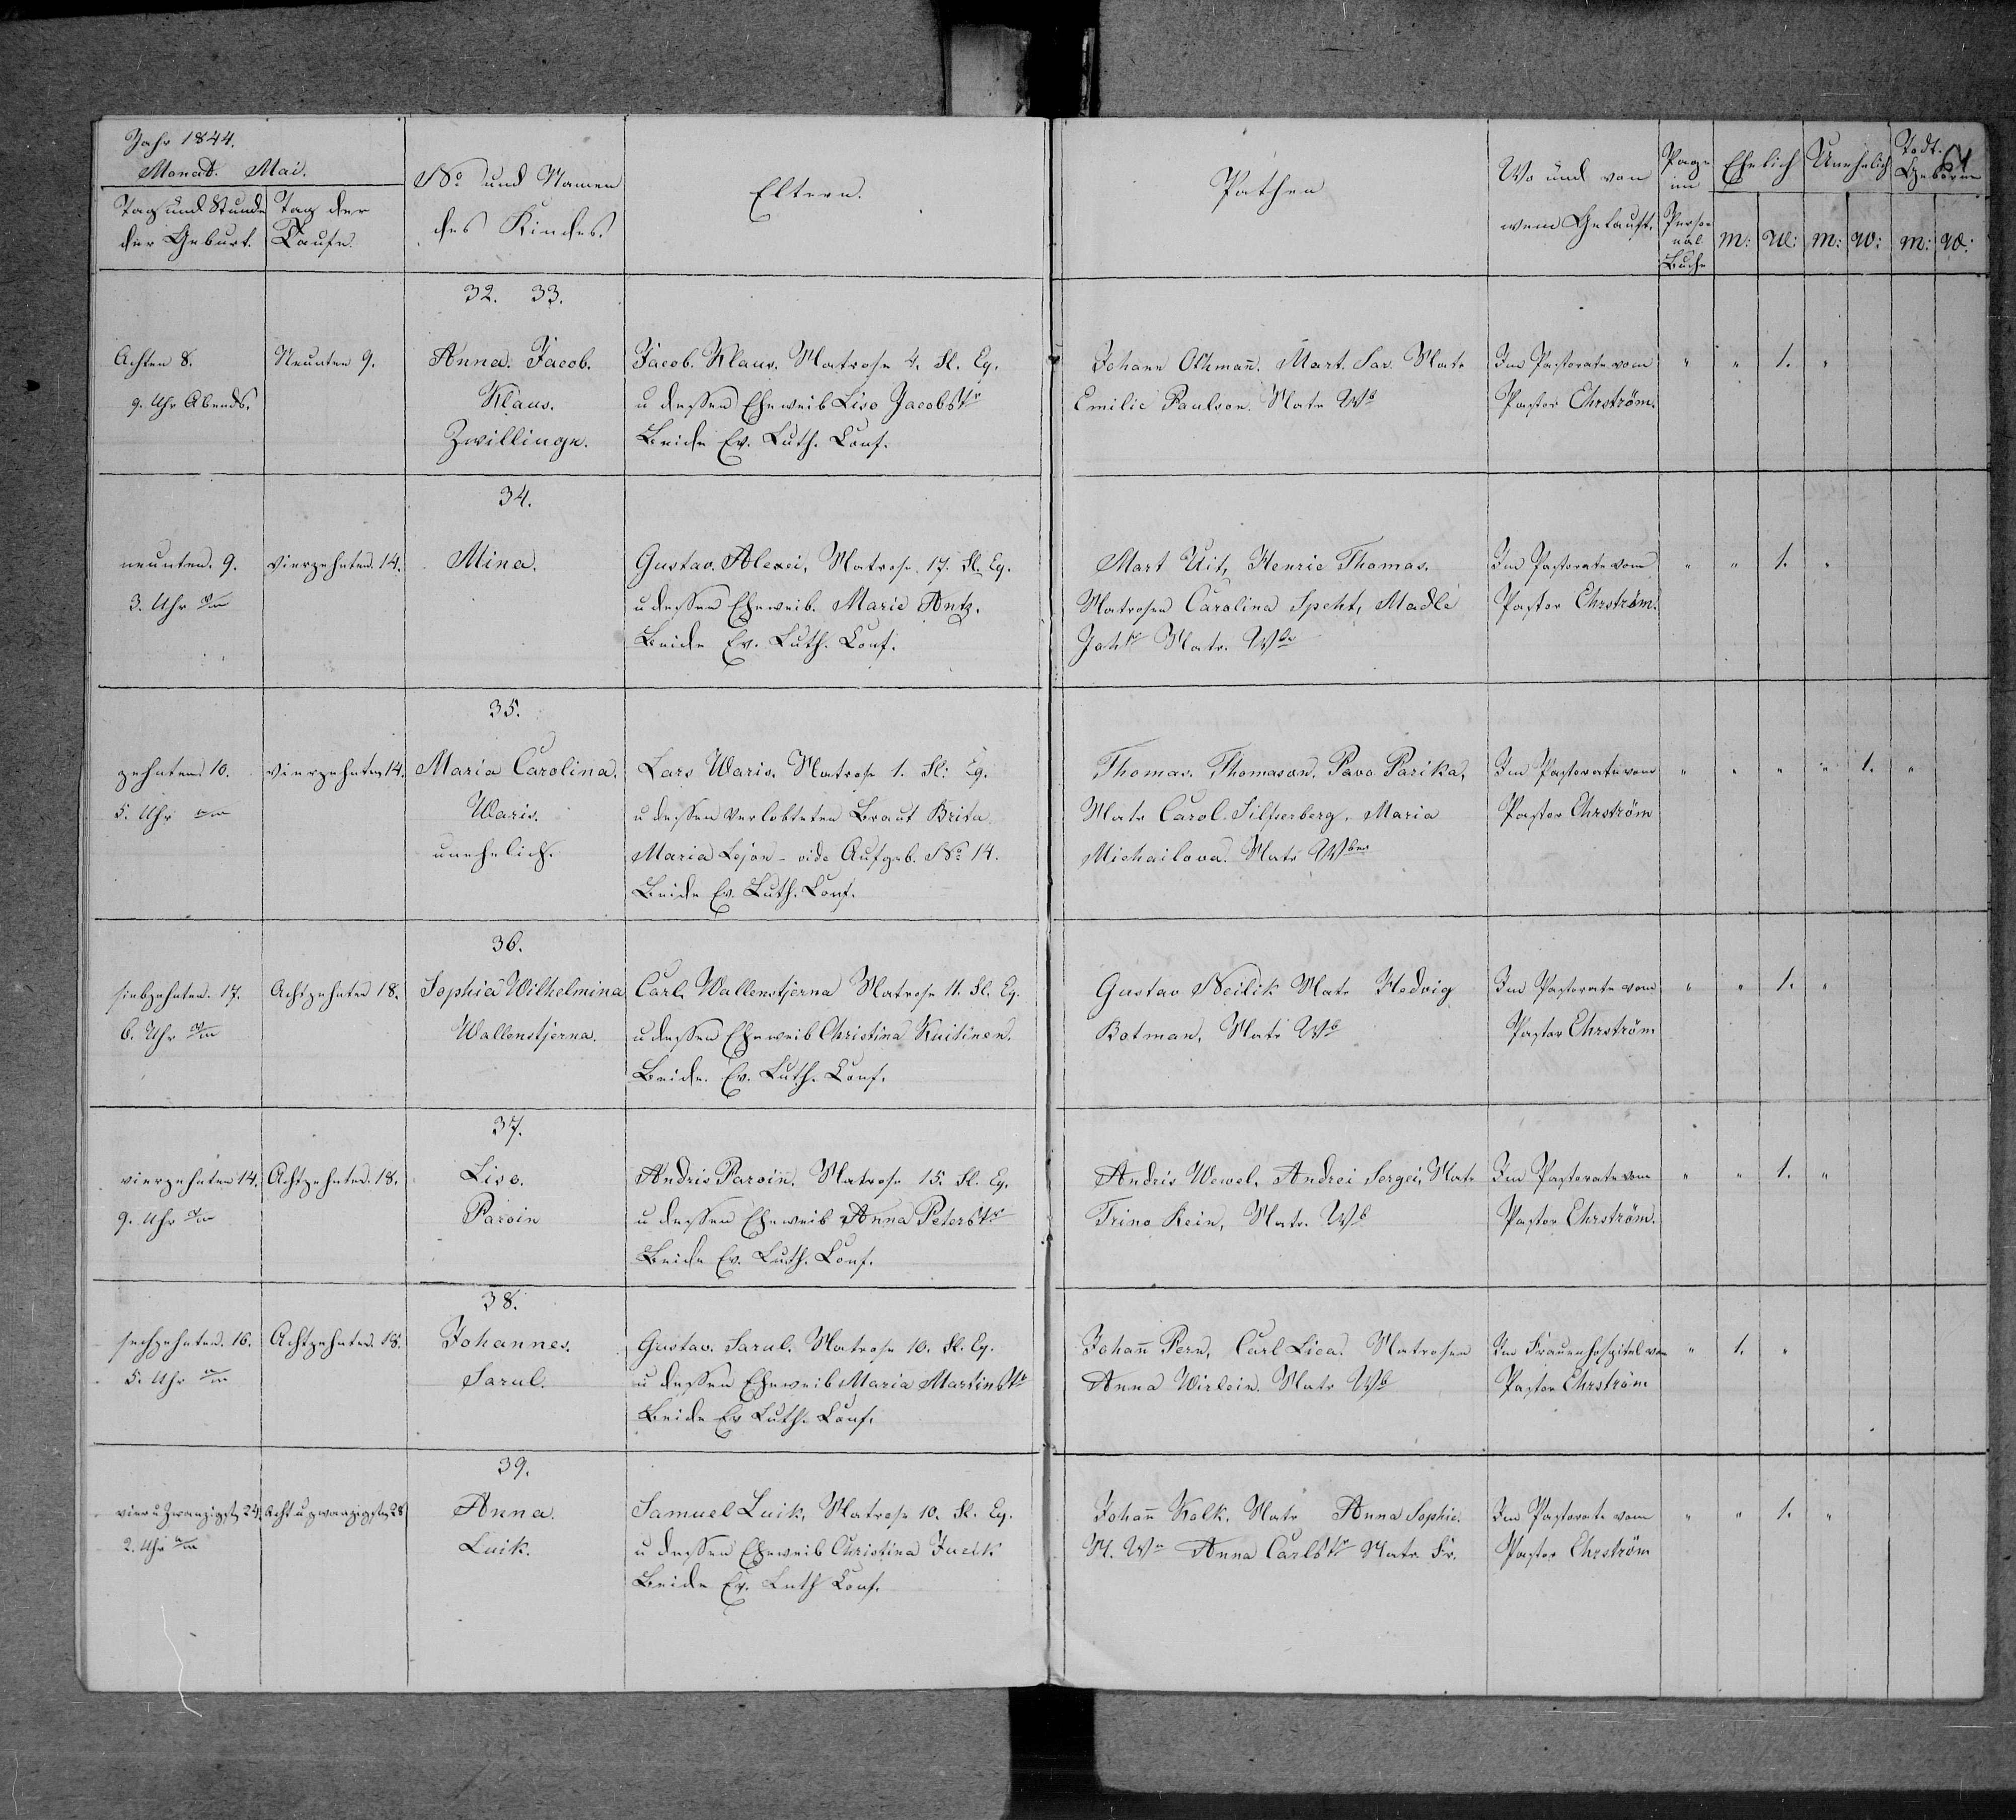 Jahr 1844.
Monat. Mai.
Tag und Stunde
der Geburt.
Tag der
Taufe.
No und Namen
des Kindes.
Eltern.
Pathen
Wo und von
wem Getauft.
Page
im
Perso-
nal
Buche
Ehelich
Unehelich
Todt.
Geboren
61
m: w: m: w: m: w:
32. 33.
Achten 8.
9. Uhr Abends.
Neunten 9.
Anna. Jacob.
Klaus.
Zwillinge.
Jacob. Klaus. Matrose 4. Fl. Eq.
u dessen Eheweib Liso Jacobstr
Beide Ev. Luth. Conf.
Johann Othmañ. Mart. Sar. Matr
Emilie Paulson. Matr Wb
Im Pastorate vom
Pastor Ehrström.
" " 1. "
34.
neunten. 9.
3. Uhr
vierzehnten. 14.
Mina.
Gustav. Alexei, Matrose. 17. Fl. Eq.
u dessen Eheweib. Marie Antz.
Beide Ev. Luth. Conf.
Mart Uit, Henric Thomas.
Matrosen Carolina Speht, Madle
Johtr Matr. Wbr
Im Pastorate vom
Pastor Ehrström.
" " 1. "
35.
zehnten 10.
5. Uhr
vierzehnten 14.
Maria Carolina.
Waris.
unehelich.
Lars Waris. Matrose 1. Fl: Eq.
u dessen verlobteten Braut Brita
Maria Lejon - vide Aufgeb. No 14.
Beide Ev. Luth. Conf.
Thomas. Thomason. Pavo Parika,
Matr Carol. Silfverberg. Maria
Michailova. Matr Wber
Im Pastorate vom
Pastor Ehrström
" " " " 1. "
36.
siebzehnten. 17.
6. Uhr
Achtzehnten 18.
Sophia Wilhelmina
Wallenstjerna.
Carl. Wallenstjerna Matrose 11. Fl. Eq.
u dessen Eheweib Christina Kuitinen.
Beide. Ev. Luth. Conf.
Gustav Neilik Matr Hedvig
Botman, Matr Wb
Im Pastorate vom
Pastor Ehrström
" " 1. "
37.
vierzehnten 14.
9. Uhr
Achtzehnten. 18.
Liso.
Paroin
Andris Paroin. Matrose 15. Fl. Eq.
u dessen Eheweib Anna Peterstr
Beide Ev. Luth. Conf.
Andris Wewel, Andrei Sergei, Matr
Trino Rein, Matr. Wb
Im Pastorate vom
Pastor Ehrström.
" " 1. "
38.
sechzehnten. 16.
5. Uhr
Achtzehnten. 18.
Johannes.
Sarul.
Gustav. Sarul. Matrose 10. Fl. Eq.
u dessen Eheweib Maria Martinstr
Beide Ev Luth. Conf.
Johañ Pern, Carl Lica. Matrosen
Anna Wirlein. Matr Wb
Im Frauenhospital vom
Pastor Ehrström
" 1. "
39.
vier u Zwanzigsten 24.
2. Uhr
Acht u zwanzigsten 28
Anna.
Luik.
Samuel Luik, Matrose 10. Fl. Eq.
u dessen Eheweib Christina Juelk
Beide Ev. Luth Conf.
Johañ Kolk. Matr Anna Sophie.
M. Wr Anna Carlstr Matr. Fr.
Im Pastorate vom
Pastor Ehrström
" " 1. "